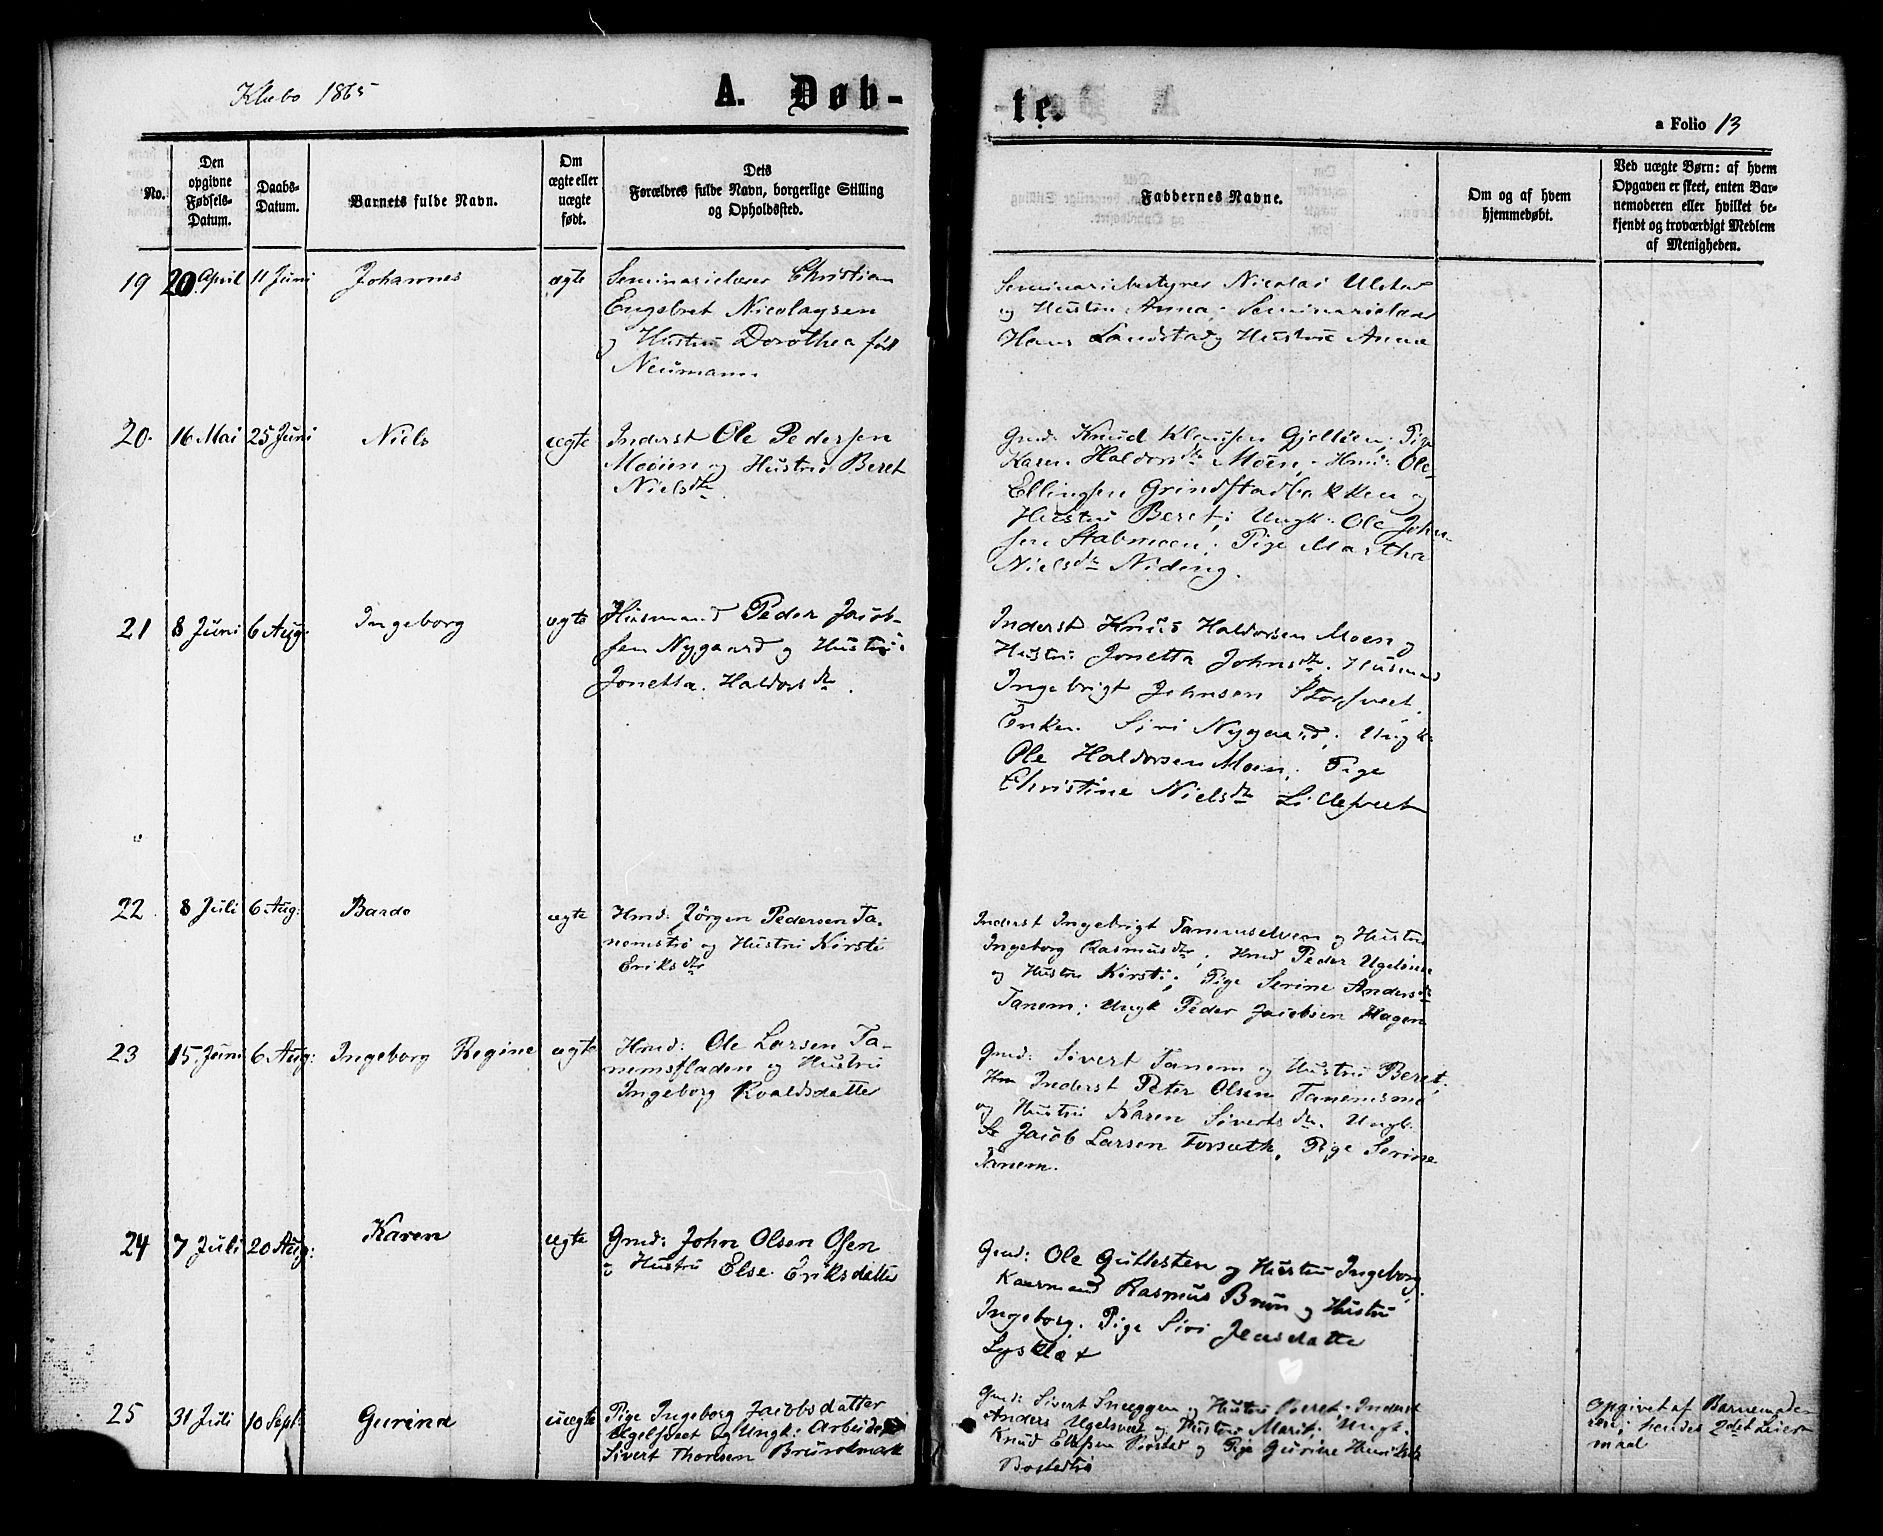 Klæbo 1865
A. Døb-
te.
a Folio 13
No.
Den
opgivne
Fødsels-
Datum.
Daabs-
Datum.
Barnets fulde Navn.
Om
ægte eller
uægte
født.
Dets
Forældres fulde Navn, borgerlige Stilling
og Opholdssted.
Faddernes Navne.
Om og af hvem
hjemmedøbt.
Ved uægte Børn: af hvem
Opgaven er skeet, enten Bar-
nemoderen eller hvilket be-
kjendt og troværdigt Medlem
af Menigheden.
19 20 April 11 Juni Johannes ægte
Seminarielærer Christian
Engebret Nicolaysen
og Hustru Dorothea født
Neumann
Seminariebestyrer Nicolai
og Hustru Anna; Seminarielærer
Hans Landstad og Hustru Anna
20. 16 Mai 25 Juni Niels ægte
Inderst Ole Pedersen
Moöien og Hustru Beret
Nielsdtr.
Gmd: Knud Klausen Gjelløen; Pige
Karen Haldorsdtr Moen; Hmd: Ole
Ellingsen Grindstadbakken og
Hustru Beret; Ungk: Ole John-
sen Stabmoen; Pige Martha
Nielsdtr Niding.
21 8 Juni 6 Aug: Ingeborg ægte
Husmand Peder Jacob-
sen Nygaard og Hustru:
Jonetta Haldorsdtr.
Inderst Knud Haldorsen Moen og
Hustru Jonetta Johnsdtr. Husmand
Ingebrigt Johnsen Storsveet.
Enken Siri Nygaard; Ungk:
Ole Haldorsen Moen; Pige
Christine Nielsdtr Lillesveet
22 8 Juli 6 Aug: Bardo ægte
Hmd: Jörgen Pedersen Ta-
nemstrø og Hustru Kirsti
Eriksdtr
Inderst Ingebrigt Tanemselven og Hustru
Ingeborg Rasmusdtr; Hmd Peder
og Hustru Kirsti; Pige Serine Andersdtr
Tanem; Ungk Peder Jacobsen Hagen
23 15. Juni 6 Aug: Ingeborg Regine ægte
Hmd: Ole Larsen Ta-
nemsfladen og Hustru
Ingeborg Roaldsdatter
Gmd: Sivert Tanem og Hustru Beret;
Inderst Peter Olsen Tanemsmo
og Hustru Karen Sivertsdtr. Ungk.
Jacob Larsen Forsæth, Pige Serine
Tanem.
24 7 Juli 20 Aug: Karen ægte
Gmd: John Olsen Osen
og Hustru Else Eriksdatter
Gmd: Ole Guttesten og Hustru Ingeborg,
Kaarmand Rasmus Bruun og Hustru
Ingeborg. Pige Siri Jensdatter
Lysklæt
25 31 Juli 10 Sept: Gurine uægte
Pige Ingeborg Jacobsdatter
Ugelsveet og Ungk: Arbeider
Sivert Thoresen Brurokmark
Gmd: Sivert Sneeggen og Hustru Beret. Inderst
Anders Ugelsveet og Hustru Marit; Ungk.
Knud Ellefsen og Pige Gurine
Bostadtrø
Opgivet af Barnemode-
ren; hendes 2det Leier-
maal